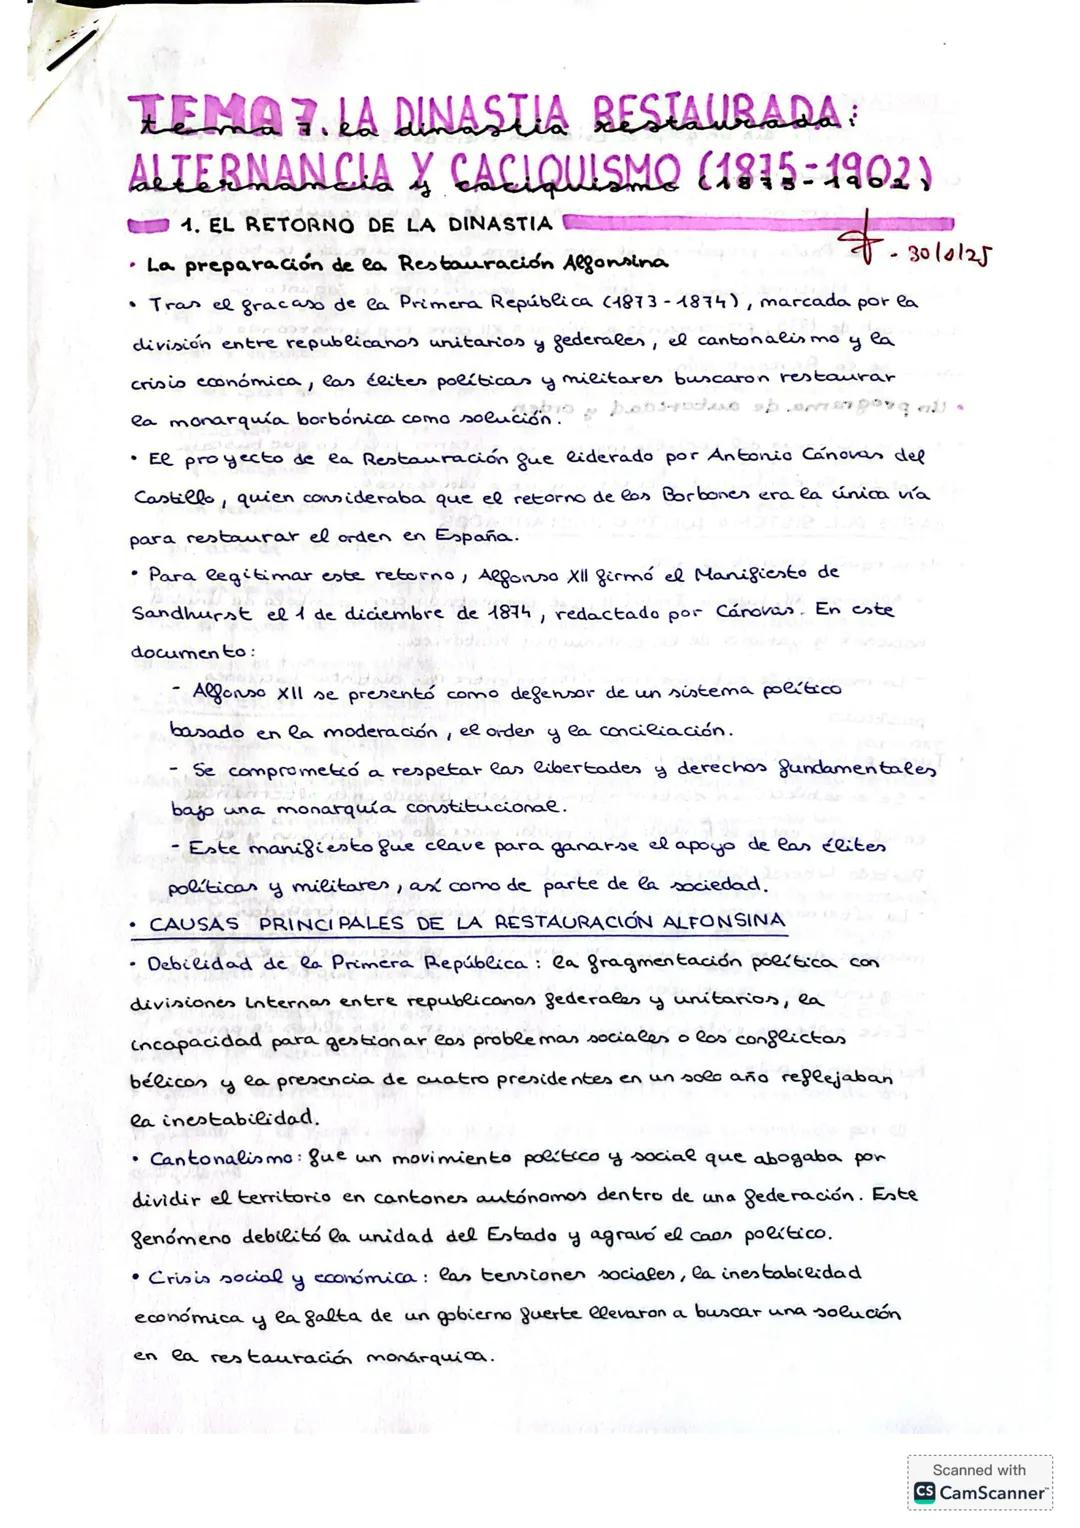 TEMA 7. LA DINASTIA RESTAURADA:
tema 7. la dinastia restaurada:
ALTERNANCIA Y CACIQUISMO (1875-1902)
alternancia y caciquismo (1875-1902)
1. EL RETORNO DE LA DINASTIA
- 30/1/25
• La preparación de la Restauración Alfonsina
• Tras el fracaso de la Primera República (1873-1874), marcada por la
división entre republicanos unitarios y federales, el cantonalismo y la
crisis económica, las élites políticas y militares buscaron restaurar
la monarquía borbónica como solución.
• El proyecto de la Restauración fue liderado por Antonio Cánovas del
Castillo, quien consideraba que el retorno de los Borbones era la única vía
para restaurar el orden en España.
• Para legitimar este retorno, Alfonso XII firmó el Manifiesto de
Sandhurst el 1 de diciembre de 1874, redactado por Cánovas. En este
documento:
- Alfonso XII se presentó como defensor de un sistema político
basado en la moderación, el orden y la conciliación.
- Se comprometió a respetar las libertades y derechos fundamentales
bajo una monarquía constitucional.
- Este manifiesto fue clave para ganarse el apoyo de las élites
políticas y militares, así como de parte de la sociedad.
• CAUSAS PRINCIPALES DE LA RESTAURACIÓN ALFONSINA
• Debilidad de la Primera República: la fragmentación política con
divisiones internas entre republicanos federales y unitarios, la
incapacidad para gestionar los problemas sociales o los conflictos
bélicos y la presencia de cuatro presidentes en un solo año reflejaban
la inestabilidad.
• Cantonalismo: fue un movimiento político y social que abogaba por
dividir el territorio en cantones autónomos dentro de una federación. Este
fenómeno debilitó la unidad del Estado y agravó el caos político.
• Crisis social y económica: las tensiones sociales, la inestabilidad
económica y la falta de un gobierno fuerte llevaron a buscar una solución
en la restauración monárquica.
Scanned with
CS CamScanner